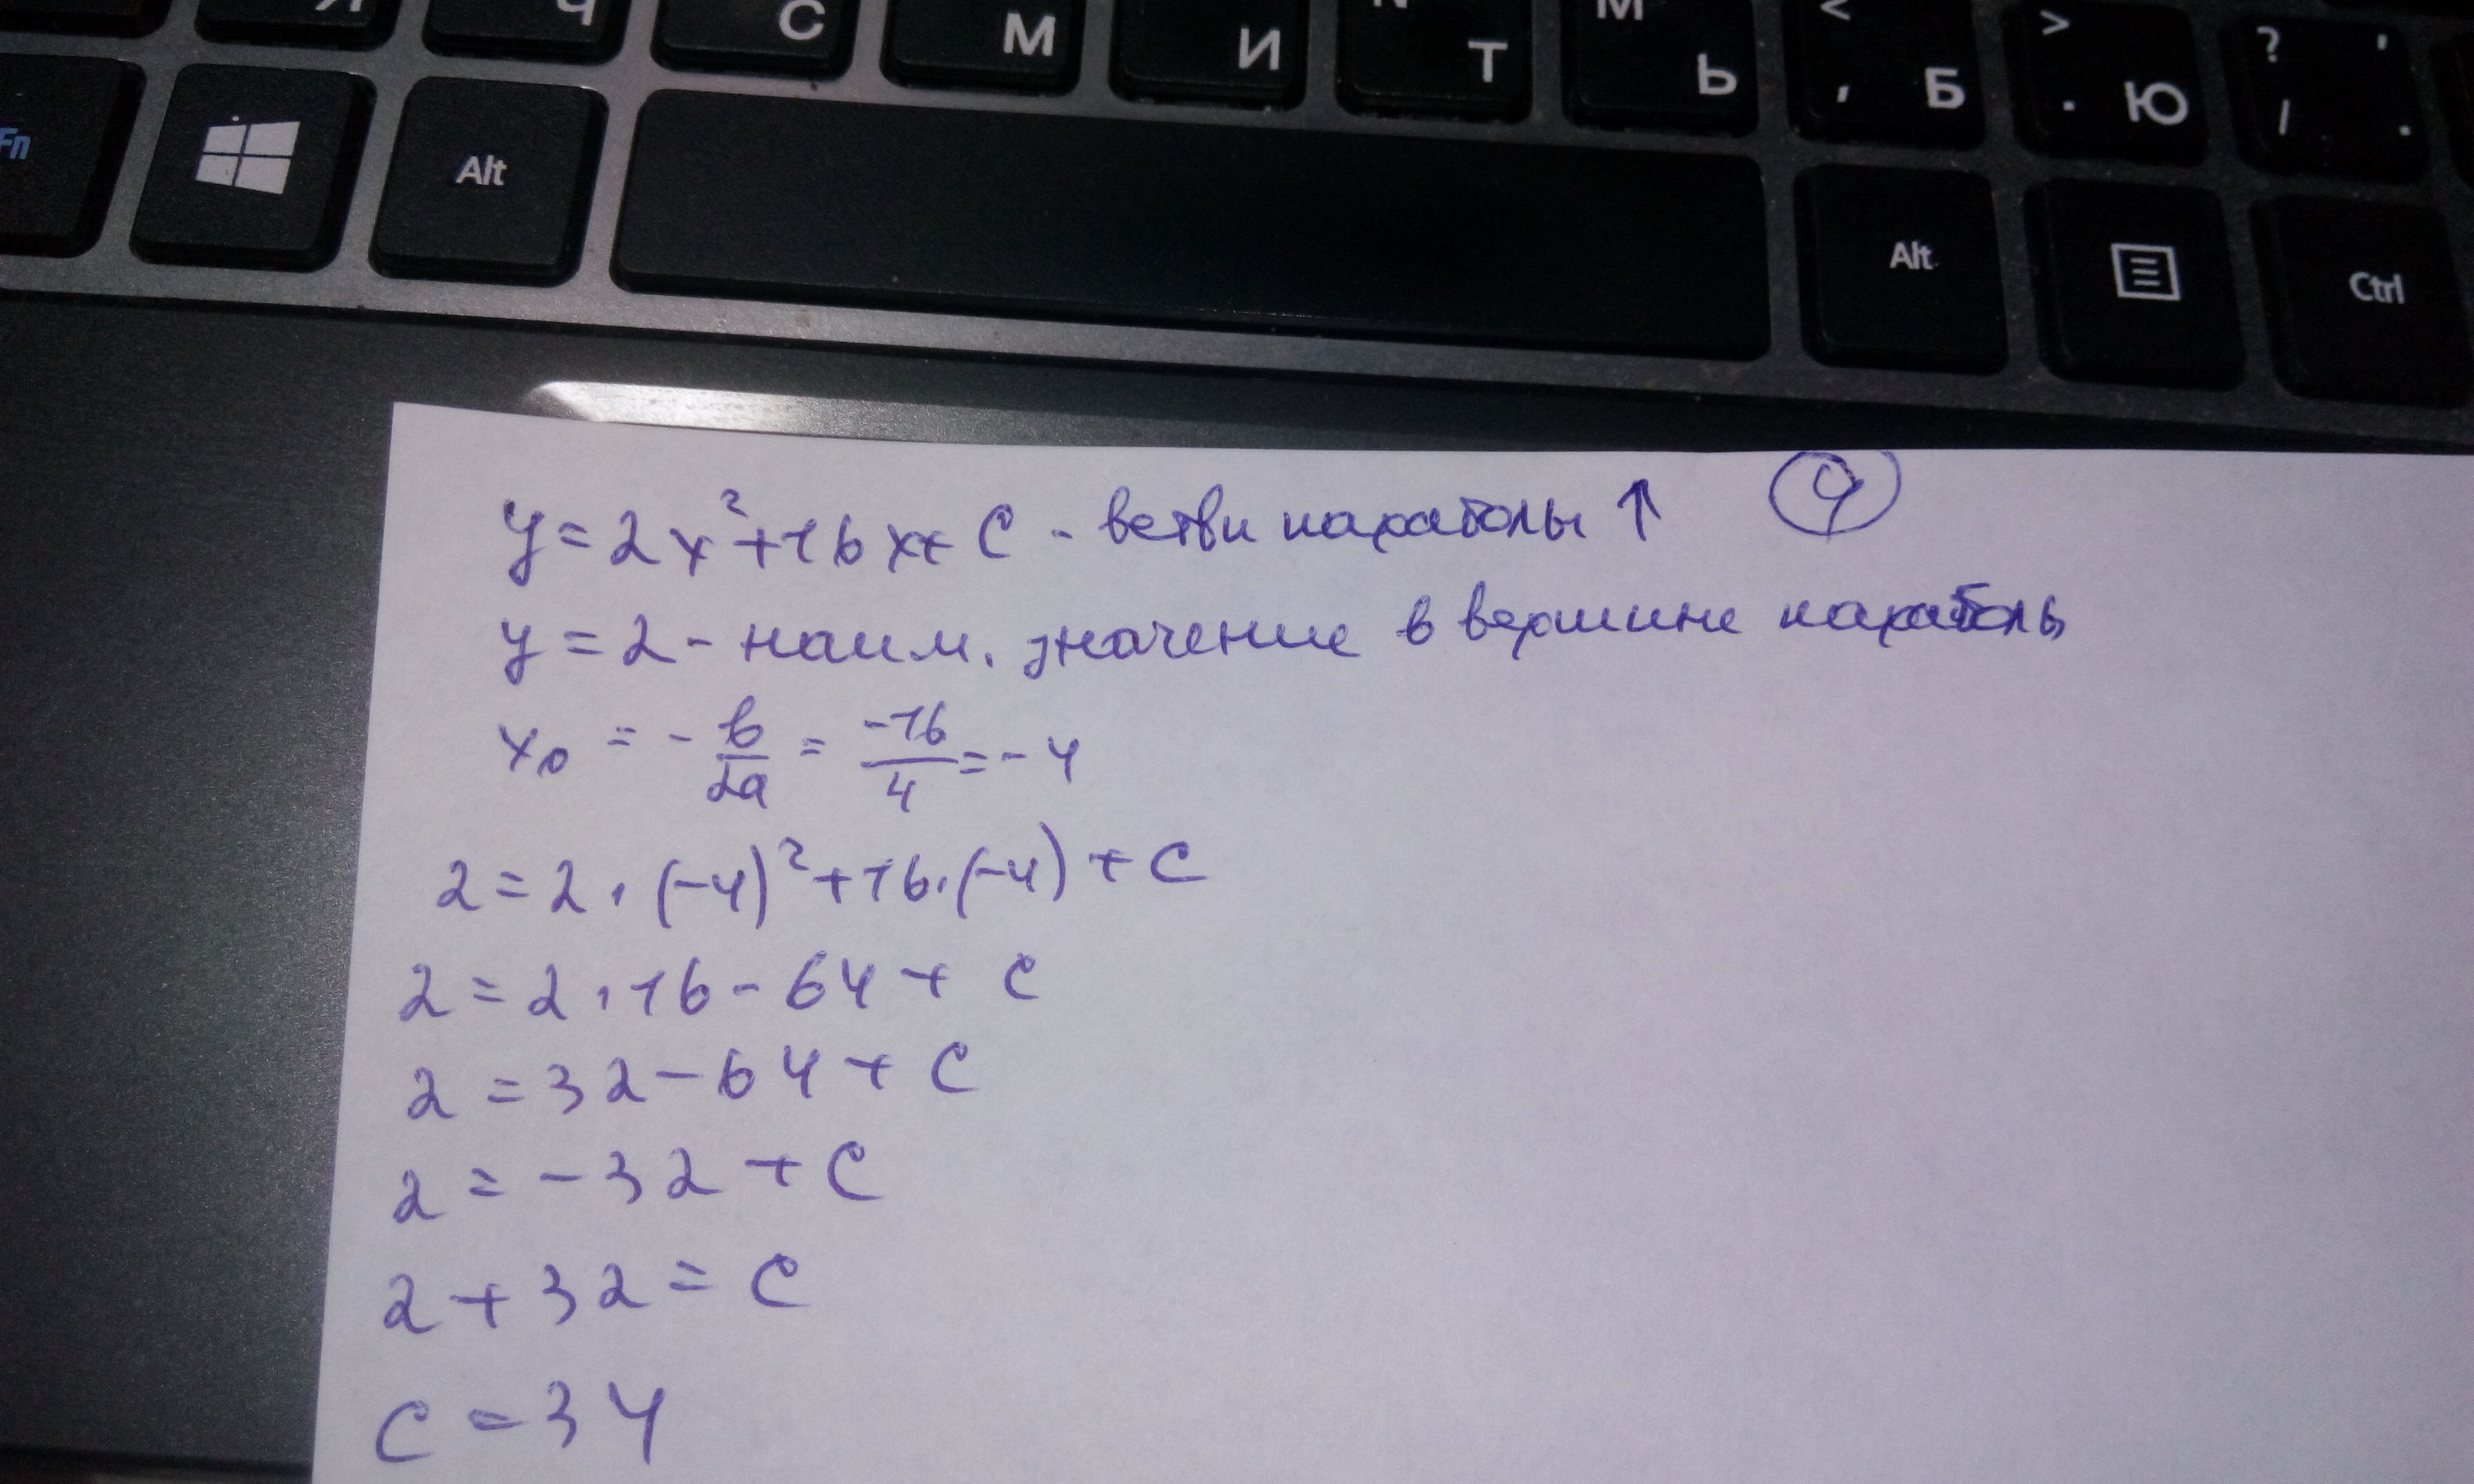 Я Ч С М И N Т М Ь < , Б > . Ю ? ' / .
Fn Alt Alt Ctrl
y = 2x² + 16x + C - ветви параболы ↑ (4)
y = 2 - наим. значение в вершине параболы
x₀ = - b/2a = -16/4 = -4
2 = 2 · (-4)² + 16 · (-4) + C
2 = 2 · 16 - 64 + C
2 = 32 - 64 + C
2 = -32 + C
2 + 32 = C
C = 34